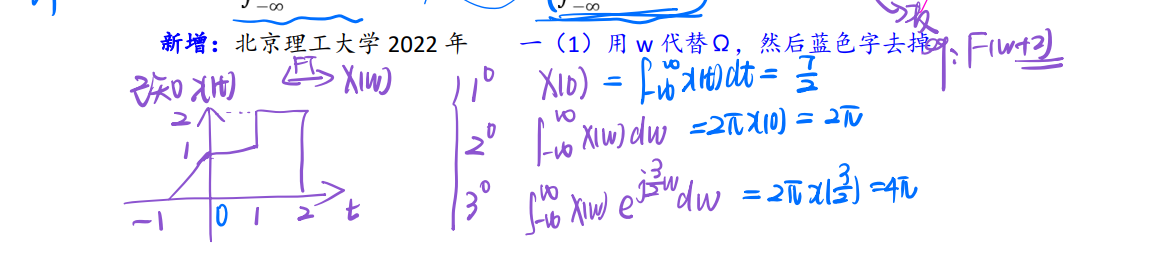 −∞ −∞
新增：北京理工大学 2022 年 一（1）用 w 代替 Ω，然后蓝色字去掉
eg: F(w+2)
已知 x(t) FT X(w)
1° X(0) = ∫_{-∞}^{∞} x(t)dt = 7/2
2° ∫_{-∞}^{∞} X(w)dw = 2π x(0) = 2π
3° ∫_{-∞}^{∞} X(w) e^{j\frac{3}{2}w} dw = 2π x(3/2) = 4π
2
1
-1 0 1 2 t